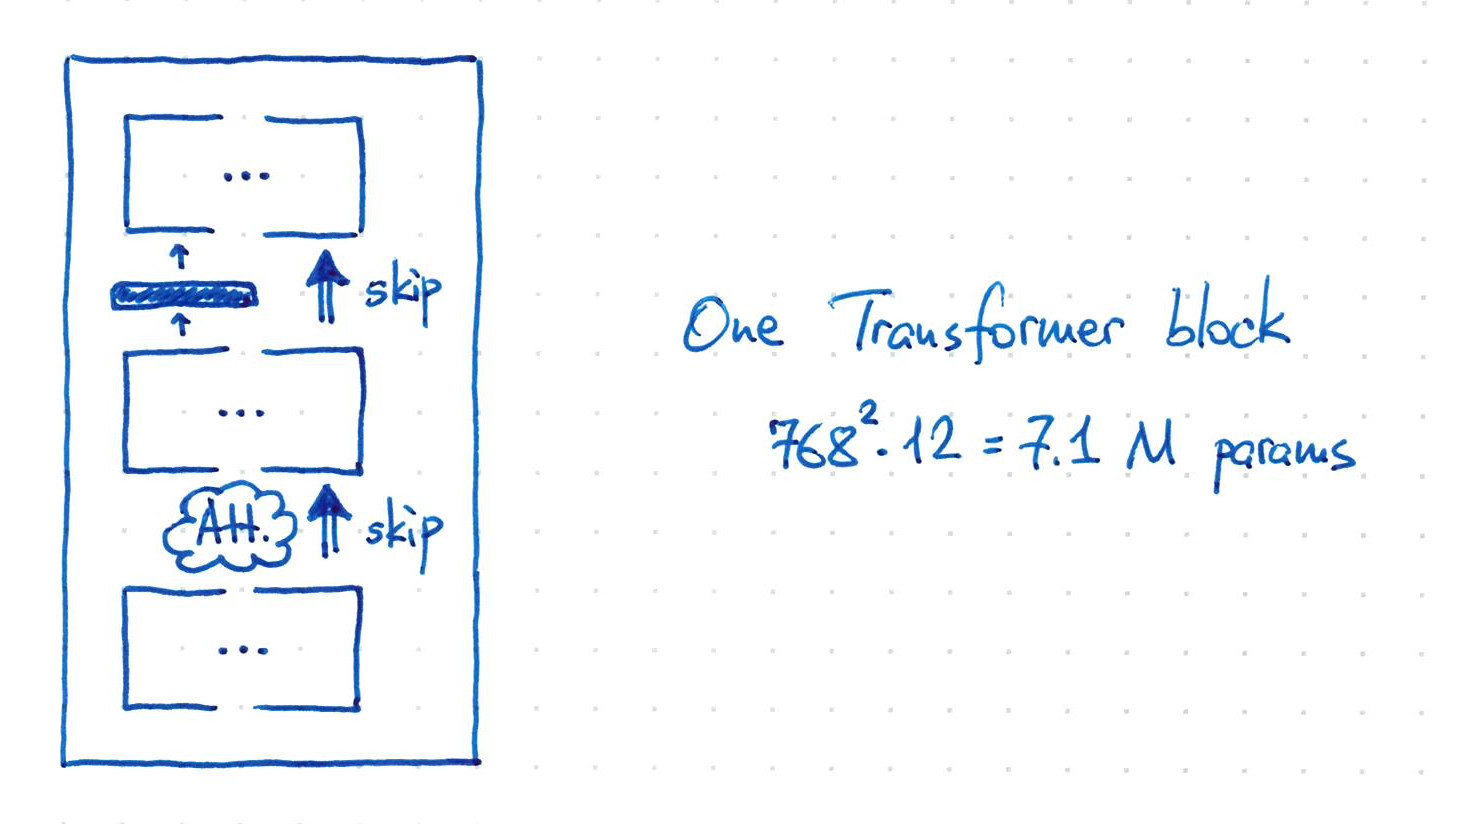 ...
skip
...
Att.
skip
...
One Transformer block
768²·12 = 7.1 M params